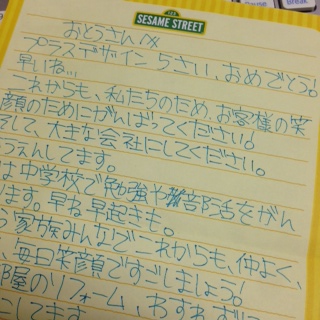 SESAME STREET
Break
おとうさんへ
プラスデザイン 5さい、おめでとう!
早いね...
これからも、私たちのため、お客様の笑
顔のためにがんばってください!
そして、大きな会社にしてください。
うえんしてます。
は中学校で勉強や部活をがん
ます。早ね早起きも。
家族みんなでこれからも、仲よく、
、毎日笑顔ですごしましょう!
部屋のリフォーム、わすれずに
にしてます。